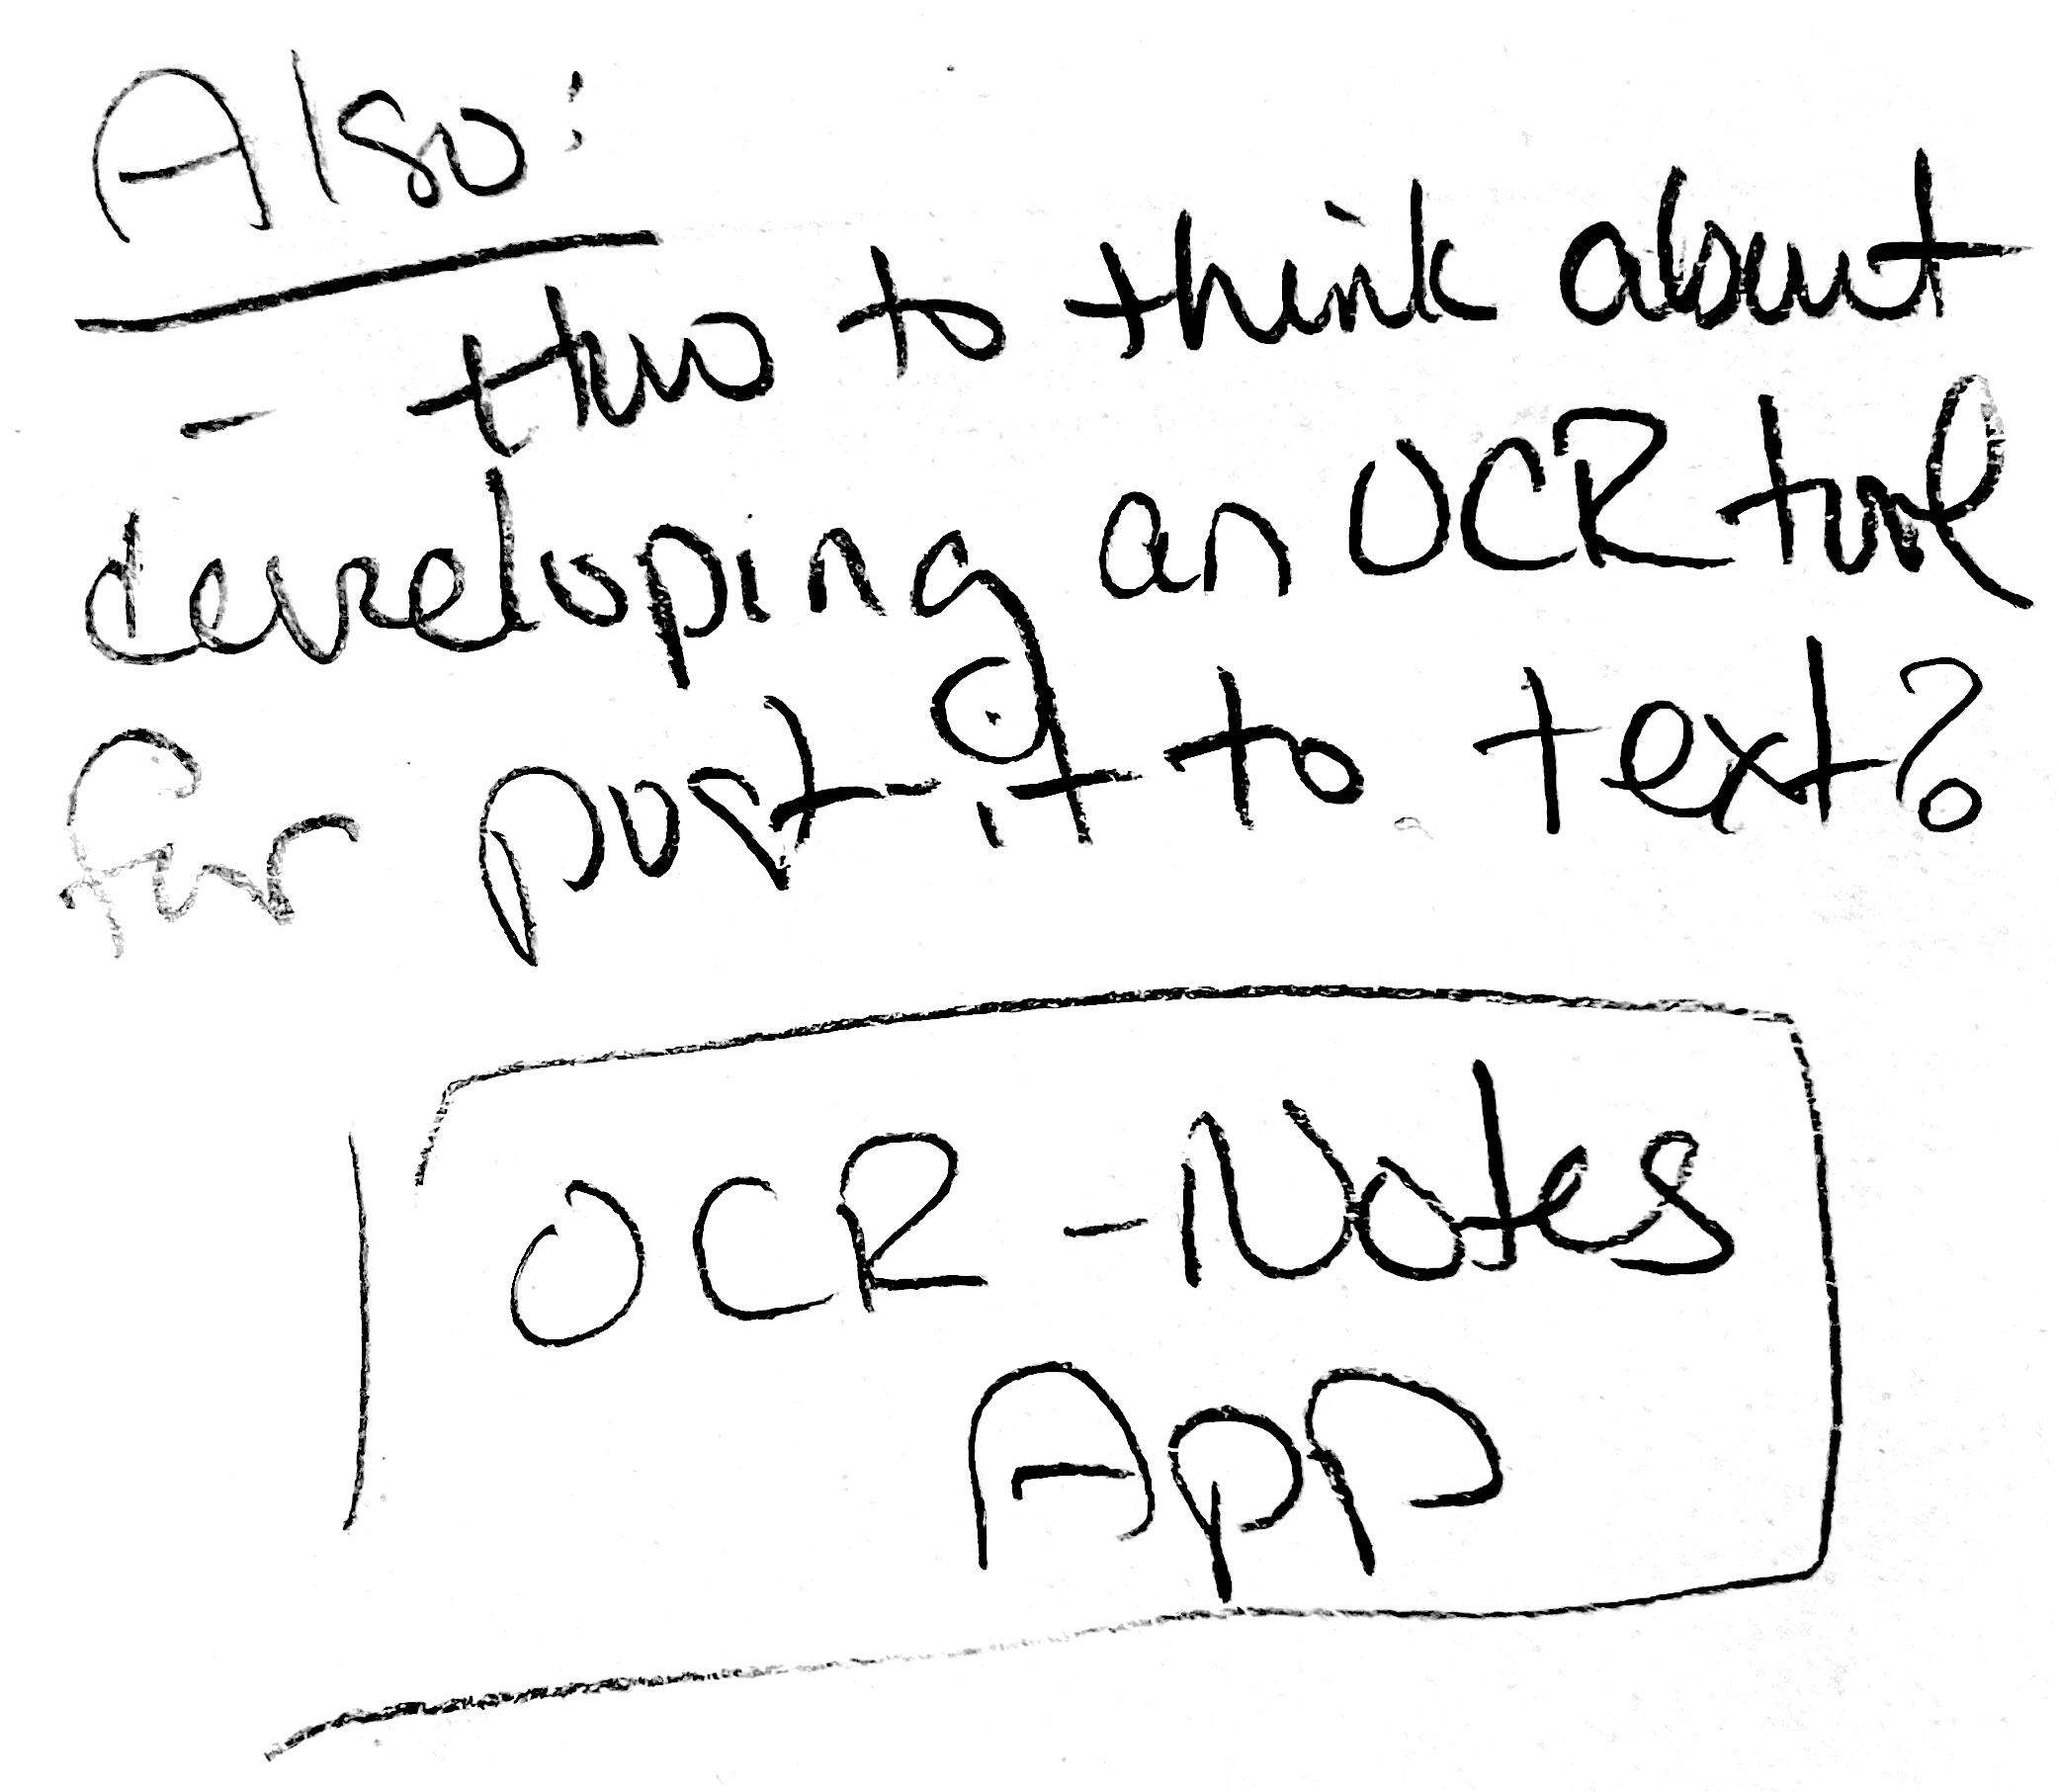 Also:
- two to think about
developing an OCR tool
for post-it to text?
OCR - Notes
App